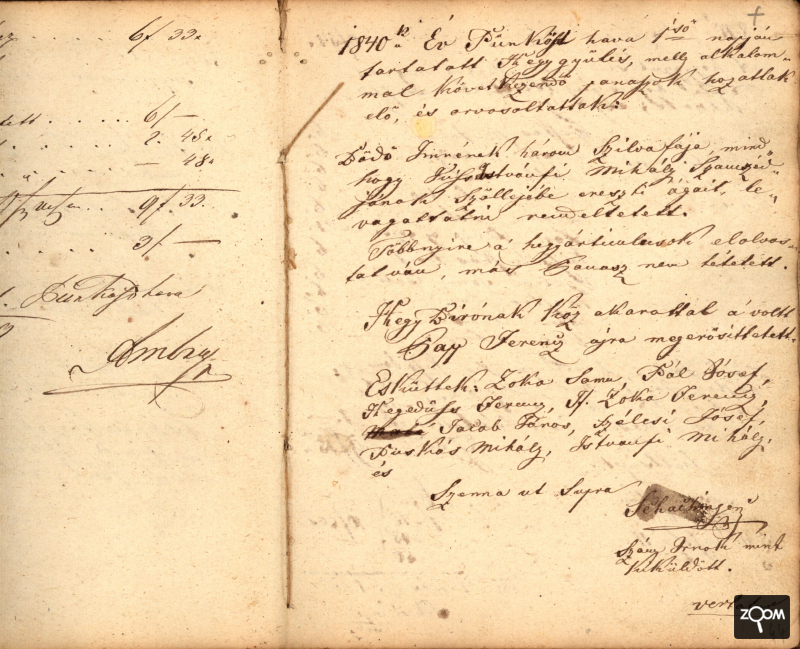 6f 33x
6/—
2. 45x
— 48x
9f 33.
3/—
Pünkösd hava
Ambrus
1840k Év Pünköst hava 1ső napján
tartatott Hegygyűlés, melly alkalom„
mal következendő panaszok hozattak
elő, és orvosoltattak:
Dödö Imrének három Szilvafája, mind„
hogy Istvánfi Mihály Szomszéd„
jának Szöllejébe ereszti ágait, le„
vagattatni rendeltetett.
Többnyire a' hegyárticulusok elolvas„
tatván, más Panasz nem tétetett.
Hegy Birónak köz akarattal a' volt
Pap Ferencz ujra megerősíttetett.
Esküttek: Zóka Samu, Pál Jósef,
Hegedüss Ferencz, A. Zóka Ferencz,
Jakab János, Szélesi Jósef,
Puskás Mihály, Istvanfi Mihály,
és
Szenna ut Supra
Ernők mint
Kiküldött.
ZOOM